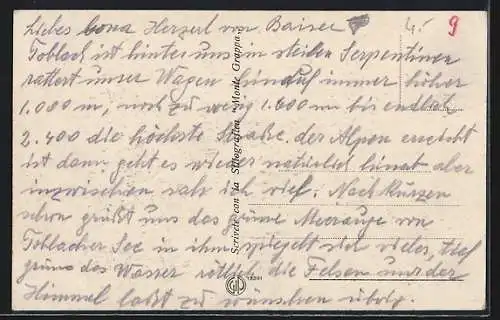 Liebes Herzerl von
Toblach ist hinter uns in steilen Serpentinen
rattert unser Wagen hinauf immer höher
1.000 m, noch zu wenig 1.600 m bis endlich
2.400 die höchste der Alpen erreicht
ist dann geht es wieder natürlich hinab aber
inzwischen sah ich viel. Nach kurzen
schon grüßt uns das grüne Meerauge von
Toblacher See in ihm spiegelt sich vieles, tief
grün das Wasser rötlich die Felsen und der
Himmel läßt zu wünschen übrig.
4.-
9
Scrivete con la Stilografica "Monte Grappa"